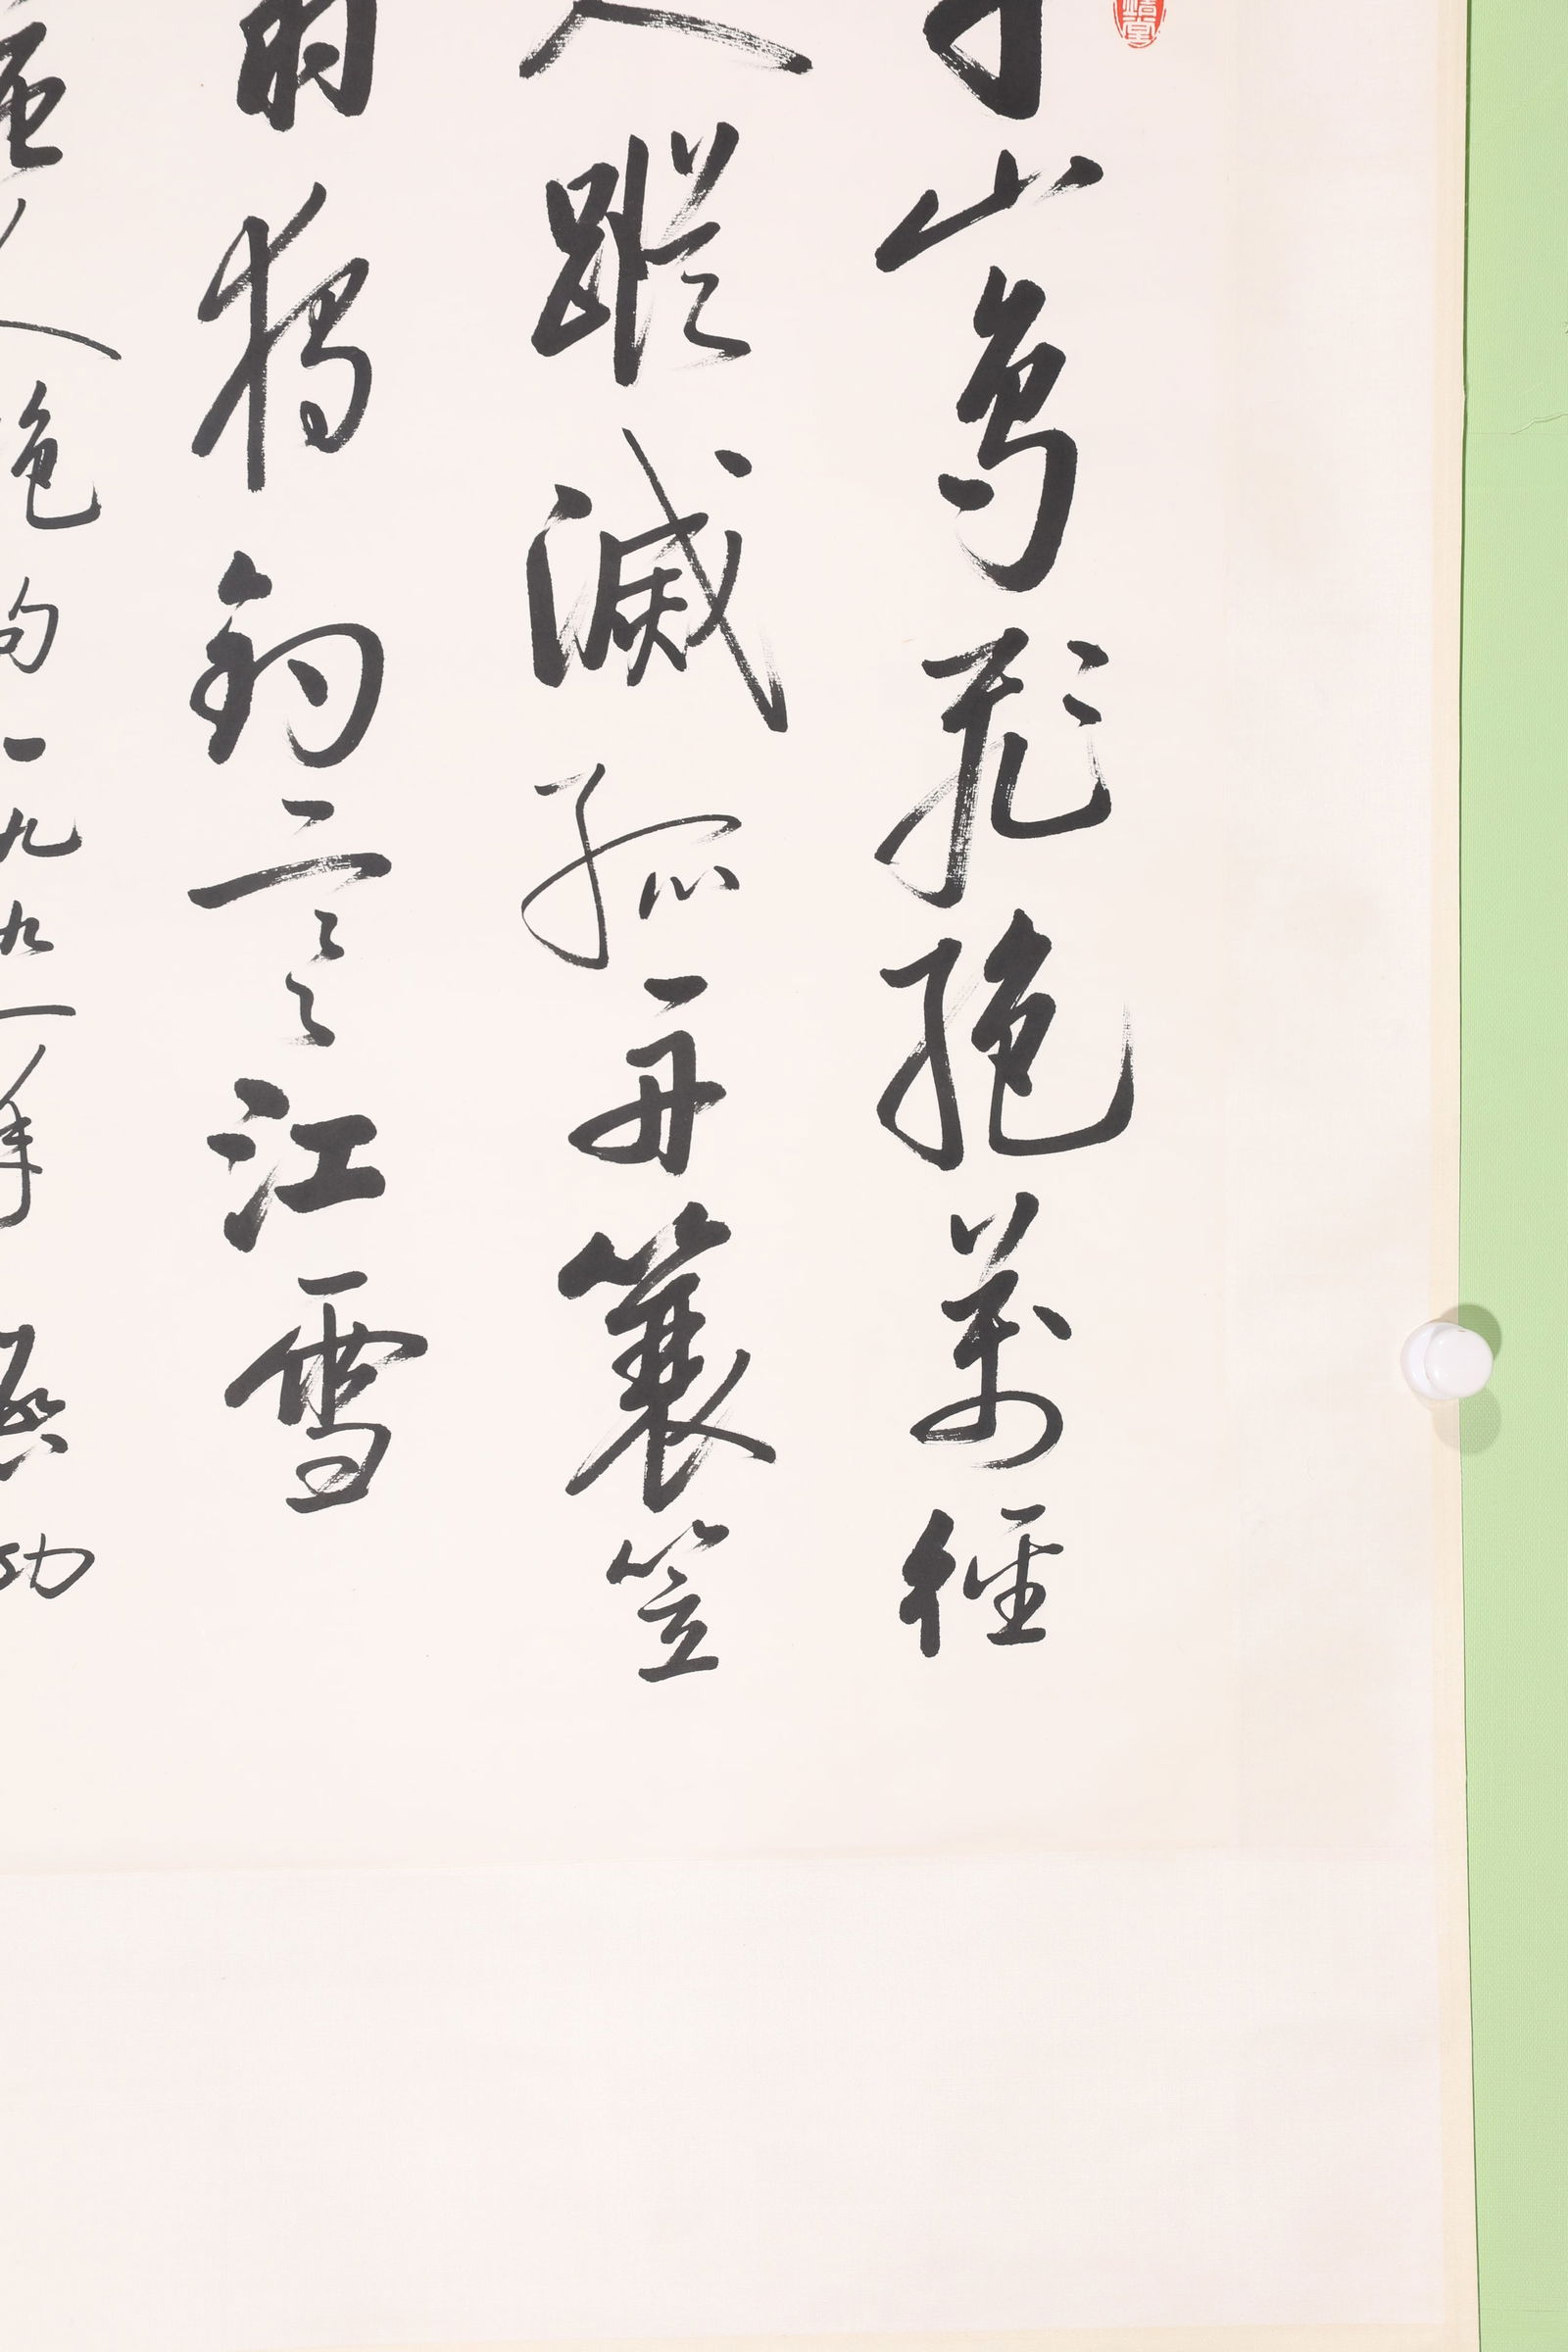 千山鳥飛絕萬徑
人蹤滅孤舟簑笠
翁獨釣寒江雪
人絕句一九九一年啟功